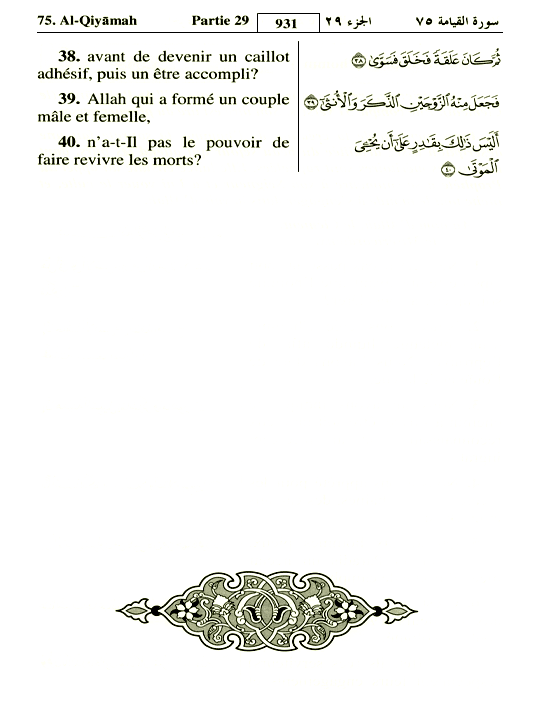 75. Al-Qiyāmah Partie 29 931 الجزء ٢٩ سورة القيامة ٧٥
38. avant de devenir un caillot
adhésif, puis un être accompli?
39. Allah qui a formé un couple
mâle et femelle,
40. n'a-t-Il pas le pouvoir de
faire revivre les morts?
ثُمَّ كَانَ عَلَقَةً فَخَلَقَ فَسَوَّىٰ ٣٨
فَجَعَلَ مِنْهُ ٱلزَّوْجَيْنِ ٱلذَّكَرَ وَٱلْأُنثَىٰٓ ٣٩
أَلَيْسَ ذَٰلِكَ بِقَٰدِرٍ عَلَىٰٓ أَن يُحْـِۧىَ
ٱلْمَوْتَىٰ ٤٠